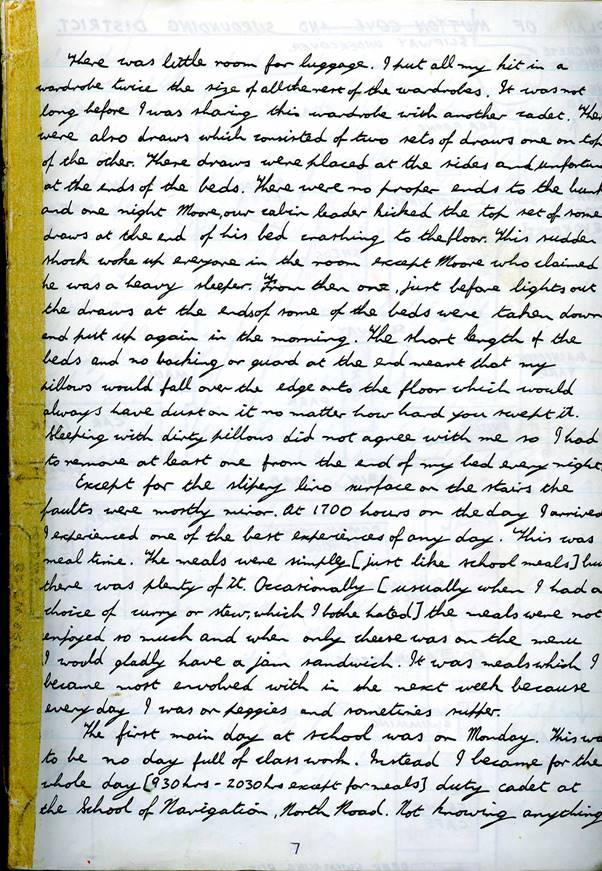 There was little room for luggage. I put all my kit in a
wardrobe twice the size of all the rest of the wardrobes. It was not
long before I was sharing this wardrobe with another cadet. Ther
were also draws which consisted of two sets of draws one on top
of the other. These draws were placed at the sides and unfortun
at the ends of the beds. There were no proper ends to the bunk
and one night Moore, our cabin leader kicked the top set of some
draws at the end of his bed crashing to the floor. This sudden
shock woke up everyone in the room except Moore who claimed
he was a heavy sleeper. From then one, just before lights out
the draws at the ends of some of the beds were taken down
and put up again in the morning. The short length of the
beds and no backing or guard at the end meant that my
pillows would fall over the edge onto the floor which would
always have dust on it no matter how hard you swept it.
Sleeping with dirty pillows did not agree with me so I had
to remove at least one from the end of my bed every night
Except for the slipery lino surface on the stairs the
faults were mostly minor. At 1700 hours on the day I arrived
I experienced one of the best experiences of any day. This was
meal time. The meals were simply [just like school meals] bu
there was plenty of it. Occasionally [usually when I had a
choice of curry or stew, which I bothe hated] the meals were not
enjoyed so much and when only cheese was on the menu
I would gladly have a jam sandwich. It was meals which I
became most envolved with in the next week because
every day I was on peggies and sometimes supper.
The first main day at school was on Monday. This wa
to be no day full of class work. Instead I became for the
whole day [930hrs - 2030hrs except for meals] duty cadet at
the School of Navigation, North Road. Not knowing anything
7